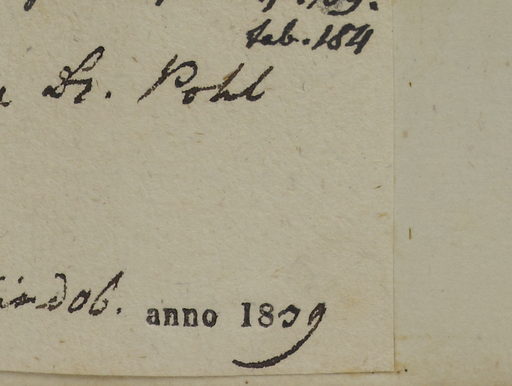 tab. 184
Dr. Pohl
indob. anno 1839